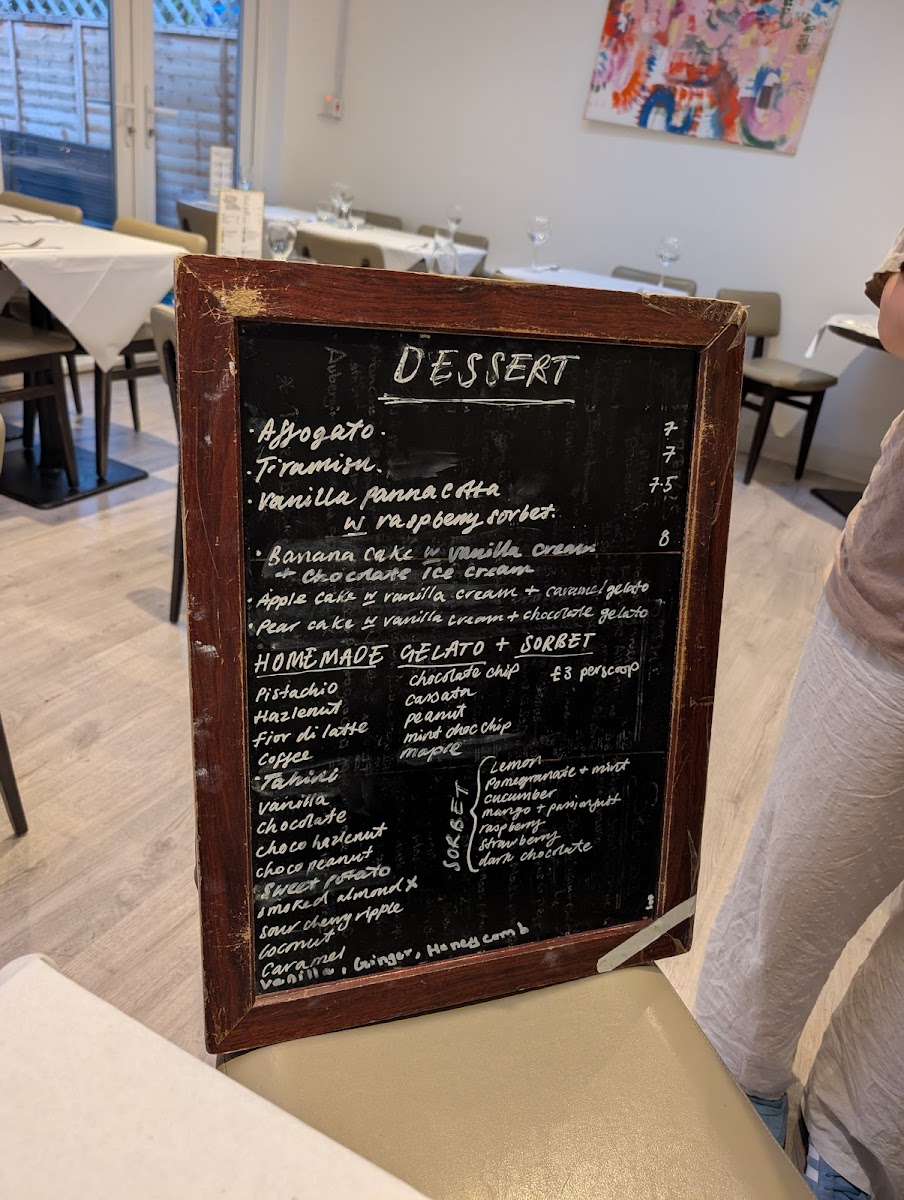 DESSERT
· Affogato. 7
· Tiramisu. 7
· vanilla pannacotta 7.5
w raspberry sorbet.
· Banana cake w vanilla cream 8
+ chocolate ice cream
· Apple cake w vanilla cream + caramel gelato
· Pear cake w vanilla cream + chocolate gelato
HOMEMADE GELATO + SORBET
£3 per scoop
Pistachio
Hazlenut
fior di latte
coffee
Tahini
vanilla
chocolate
choco hazlenut
choco peanut
Sweet potato
smoked almond x
sour cherry ripple
coconut
caramel
vanilla, Ginger, Honeycomb
chocolate chip
cassata
peanut
mint choc chip
maple
SORBET
Lemon
Pomegranate + mint
cucumber
mango + passionfruit
raspberry
strawberry
dark chocolate